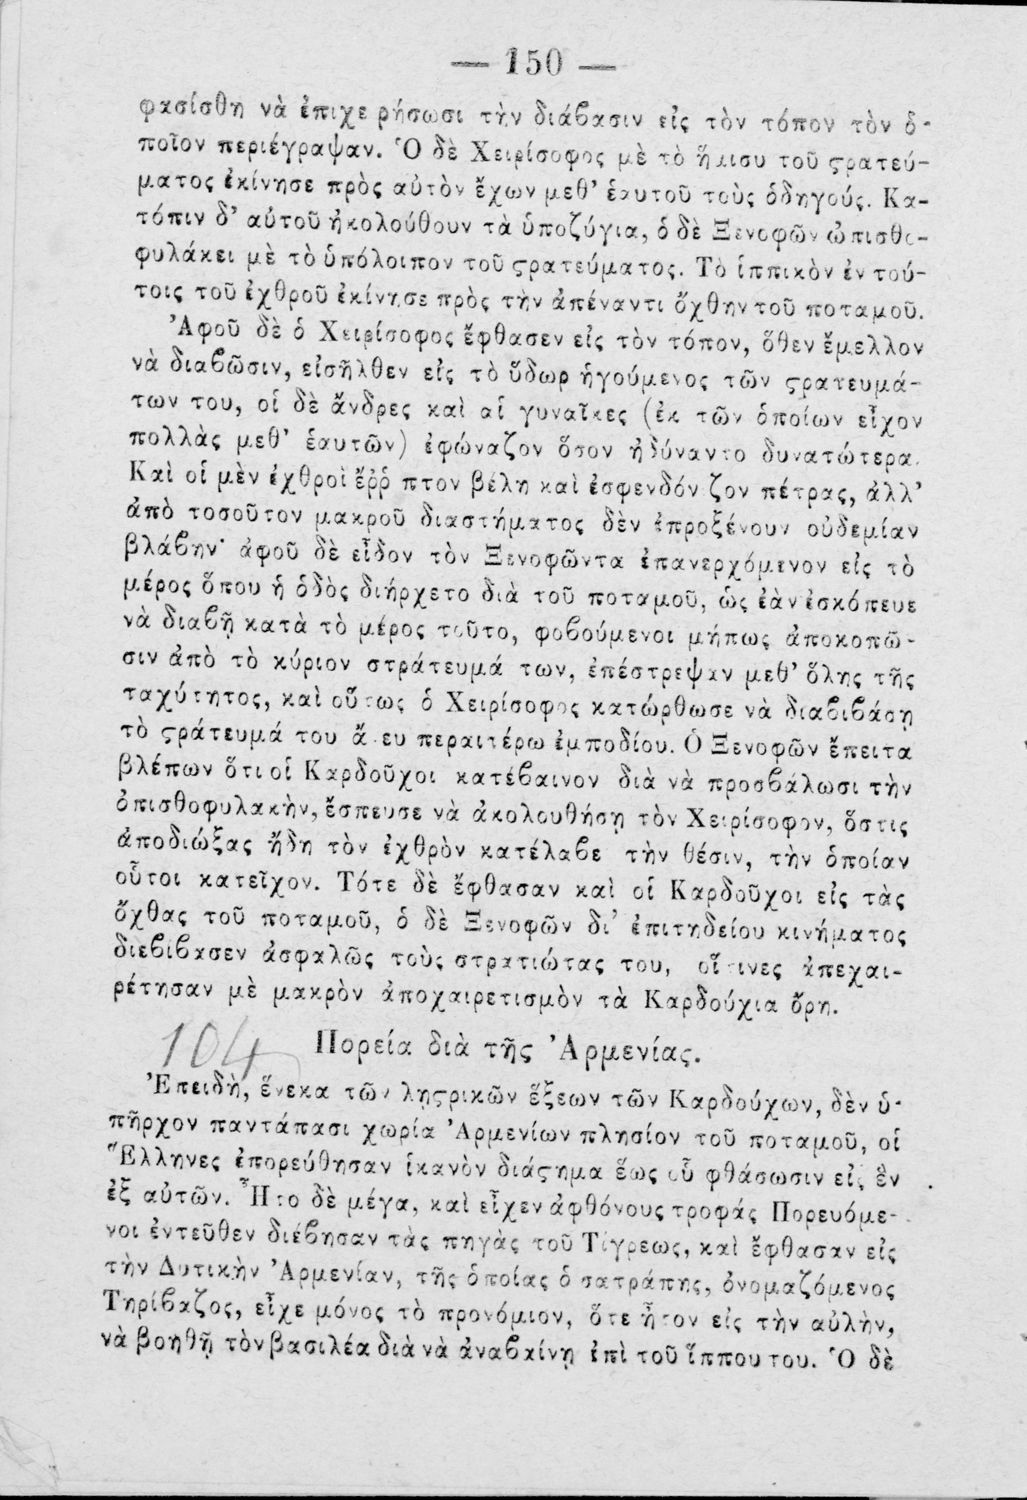 — 150 —
φασίσθη νὰ ἐπιχε ρήσωσι τὴν διάβασιν εἰς τὸν τόπον τὸν ὁ-
ποῖον περιέγραψαν. Ὁ δὲ Χειρίσοφος μὲ τὸ ἥμισυ τοῦ ϛρατεύ-
ματος ἐκίνησε πρὸς αὐτὸν ἔχων μεθ' ἑαυτοῦ τοὺς ὁδηγούς. Κα-
τόπιν δ' αὐτοῦ ἠκολούθουν τὰ ὑποζύγια, ὁ δὲ Ξενοφῶν ὠπισθο-
φυλάκει μὲ τὸ ὑπόλοιπον τοῦ ϛρατεύματος. Τὸ ἱππικὸν ἐν τού-
τοις τοῦ ἐχθροῦ ἐκίνησε πρὸς τὴν ἀπέναντι ὄχθην τοῦ ποταμοῦ.
Ἀφοῦ δὲ ὁ Χειρίσοφος ἔφθασεν εἰς τὸν τόπον, ὅθεν ἔμελλον
νὰ διαβῶσιν, εἰσῆλθεν εἰς τὸ ὕδωρ ἡγούμενος τῶν ϛρατευμά-
των του, οἱ δὲ ἄνδρες καὶ αἱ γυναῖκες (ἐκ τῶν ὁποίων εἶχον
πολλὰς μεθ' ἑαυτῶν) ἐφώναζον ὅσον ἠδύναντο δυνατώτερα.
Καὶ οἱ μὲν ἐχθροὶ ἔῤῥ πτον βέλη καὶ ἐσφενδόν ζον πέτρας, ἀλλ'
ἀπὸ τοσοῦτον μακροῦ διαστήματος δὲν ἐπροξένουν οὐδεμίαν
βλάβην· ἀφοῦ δὲ εἶδον τὸν Ξενοφῶντα ἐπανερχόμενον εἰς τὸ
μέρος ὅπου ἡ ὁδὸς διήρχετο διὰ τοῦ ποταμοῦ, ὡς ἐὰν ἐσκόπευε
νὰ διαβῇ κατὰ τὸ μέρος τοῦτο, φοβούμενοι μήπως ἀποκοπῶ-
σιν ἀπὸ τὸ κύριον στράτευμά των, ἐπέστρεψαν μεθ' ὅλης τῆς
ταχύτητος, καὶ οὕτως ὁ Χειρίσοφος κατώρθωσε νὰ διαβιβάσῃ
τὸ ϛράτευμά του ἄ ευ περαιτέρω ἐμποδίου. Ὁ Ξενοφῶν ἔπειτα
βλέπων ὅτι οἱ Καρδοῦχοι κατέβαινον διὰ νὰ προσβάλωσι τὴν
ὀπισθοφυλακὴν, ἔσπευσε νὰ ἀκολουθήσῃ τὸν Χειρίσοφον, ὅστις
ἀποδιώξας ἤδη τὸν ἐχθρὸν κατέλαβε τὴν θέσιν, τὴν ὁποίαν
οὗτοι κατεῖχον. Τότε δὲ ἔφθασαν καὶ οἱ Καρδοῦχοι εἰς τὰς
ὄχθας τοῦ ποταμοῦ, ὁ δὲ Ξενοφῶν δι' ἐπιτηδείου κινήματος
διεβίβασεν ἀσφαλῶς τοὺς στρατιώτας του, οἵτινες ἀπεχαι-
ρέτησαν μὲ μακρὸν ἀποχαιρετισμὸν τὰ Καρδούχια ὄρη.
104
Πορεία διὰ τῆς Ἀρμενίας.
Ἐπειδὴ, ἕνεκα τῶν λῃϛρικῶν ἕξεων τῶν Καρδούχων, δὲν ὑ-
πῆρχον παντάπασι χωρία Ἀρμενίων πλησίον τοῦ ποταμοῦ, οἱ
Ἕλληνες ἐπορεύθησαν ἱκανὸν διάϛημα ἕως οὗ φθάσωσιν εἰς ἓν
ἐξ αὐτῶν. Ἦτο δὲ μέγα, καὶ εἶχεν ἀφθόνους τροφάς Πορευόμε-
νοι ἐντεῦθεν διέβησαν τὰς πηγὰς τοῦ Τίγρεως, καὶ ἔφθασαν εἰς
τὴν Δυτικὴν Ἀρμενίαν, τῆς ὁποίας ὁ σατράπης, ὀνομαζόμενος
Τηρίβαζος, εἶχε μόνος τὸ προνόμιον, ὅτε ἦτον εἰς τὴν αὐλὴν,
νὰ βοηθῇ τὸν βασιλέα διὰ νὰ ἀναβαίνῃ ἐπὶ τοῦ ἵππου του. Ὁ δὲ